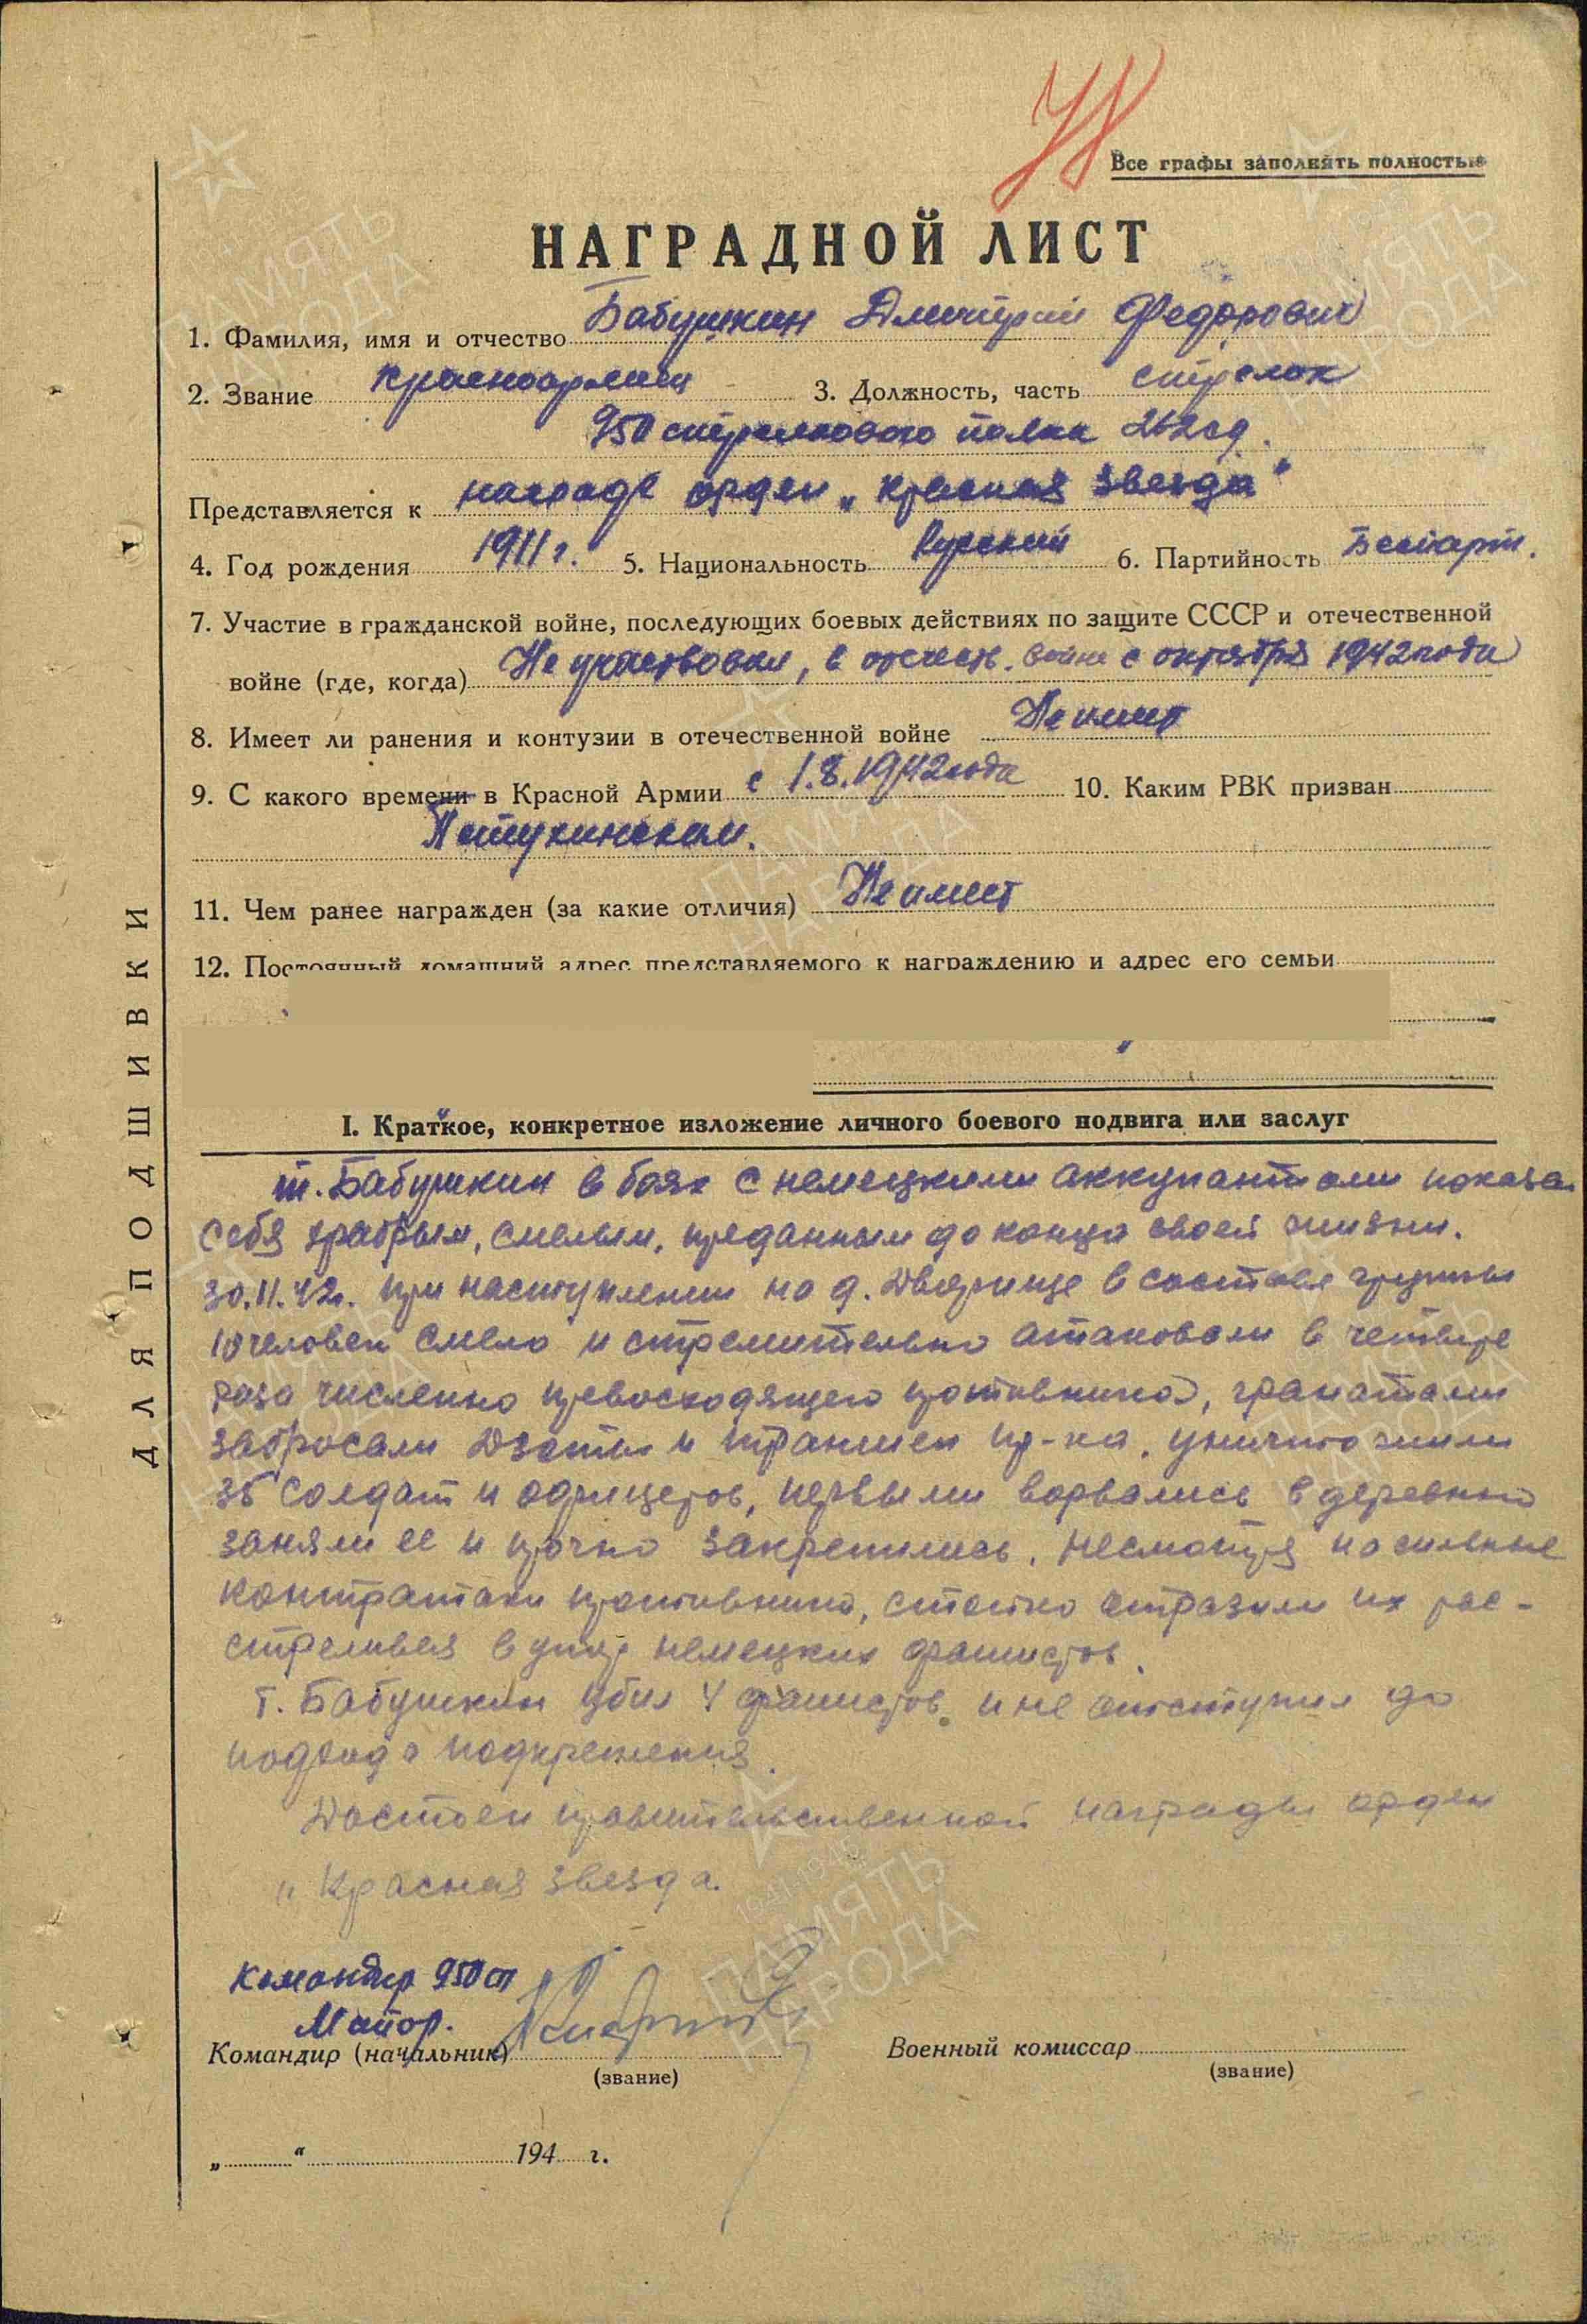 Все графы заполнять полностью
НАГРАДНОЙ ЛИСТ
1. Фамилия, имя и отчество Бабушкин Дмитрий Федорович
2. Звание красноармеец 3. Должность, часть стрелок
950 стрелкового полка 262 сд.
Представляется к награде орден „Красная звезда"
4. Год рождения 1911 г. 5. Национальность Русский 6. Партийность Беспарт.
7. Участие в гражданской войне, последующих боевых действиях по защите СССР и отечественной
войне (где, когда) Не участвовал, в отечеств. войне с октября 1942 года
8. Имеет ли ранения и контузии в отечественной войне Не имеет
9. С какого времени в Красной Армии с 1.8.1942 года 10. Каким РВК призван
11. Чем ранее награжден (за какие отличия) Не имеет
12. Постоянный домашний адрес представляемого к награждению и адрес его семьи
I. Краткое, конкретное изложение личного боевого подвига или заслуг
т. Бабушкин в боях с немецкими аккупантами показал
себя храбрым, смелым, преданным до конца своей жизни.
30.11.42г. при наступлении на д. Дворище в составе группы
10 человек смело и стремительно атаковали в четыре
раза численно превосходящего противника, гранатами
забросали Дзоты и траншеи пр-ка, уничтожили
35 солдат и офицеров, первыми ворвались в деревню
заняли ее и прочно закрепились, несмотря на сильные
контратаки противника, стойко отразили их рас-
стреливая в упор немецких фашистов.
т. Бабушкин убил 4 фашистов и не отступил до
подхода подкрепления.
Достоен правительственной награды орден
„Красная звезда.
Командир 950 сп
Майор.
Командир (начальник)
(звание)
Военный комиссар
(звание)
„ “ 194 г.
ДЛЯ ПОДШИВКИ
ПАМЯТЬ НАРОДА